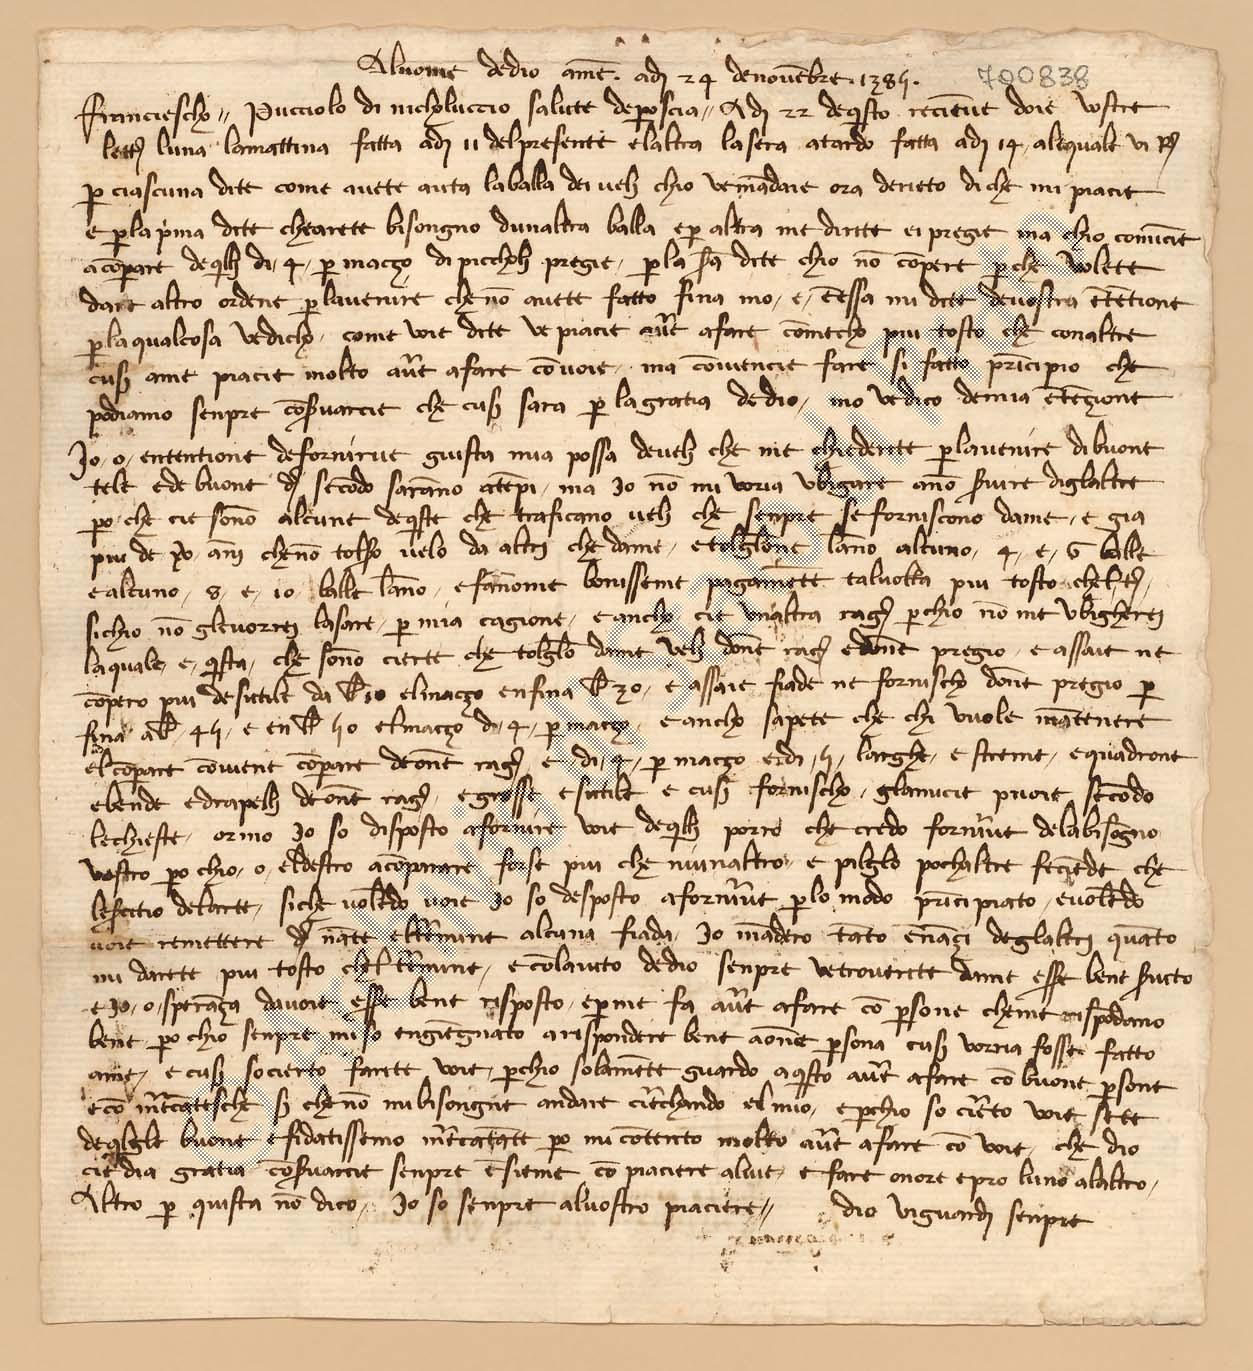 Al nome de dio ame. adj 24 de novebre. 1385.
700838
Francieschο // Pucciolo di nicholuccio salute de poscia // Adj 22 de qsto recieue doie vostre
letts luna lamattina fatta adj 11 delpresente elaltra lasera atardo fatta adj 14, alequale vi
p ciascuna dite come avete auta laballa dei veli chio ve madaie ora derieto di che mi piacie
e p la pima dite chearete bisongno dunaltra balla e p altra me dicete ei pregie ma chio comicie
acopare de qli di, 4, p maczo di piccholi pregie, p la dite chio no copere p che volete
dare altro ordene p lavenire che no avete fatto fina mo, e, e essa mi dite devostra etetione
p laqualcosa vedicho, come voie dite ve piacie avere afare comecho piu tosto che conaltre
cusi ame piacie molto avere afare covoie, ma coviencie fare si fatto pricipio che
podiamo senpre coservarcie che cusi sara p lagratia dedio, mo vedico demia eteczione
Io, o, entetione defornirve giusta mia possa develi che me chiederete p lavenire dibuone
tele ede buone secodo sarano atepi, ma Io no mi voria ubrigare ano servire diglaltre
po che cie sono alcune deqste che traficano veli che senpre se forniscono dame, e gia
piu de ani cheno tolso velo da altri che dame, etolglone lano alcuno, 4, e, 6 balle
ealcuno, 8, e, 10, balle lano, efanome bonisseme pagamete talvolta piu tosto
sichio no glevorrei lasare, p mia cagione, eancho cie unaltra p chio no me ubrigherei
laquale, e, qsta, che sono cierte che tolglo dame veli done edone pregio, e assaie ne
copero piu desuttile da 10 elmaczo enfina 30, e assaie fiade ne fornischo done pregio p
fina, 45, e en 50 elmaczo di, 4, p maczo, eancho sapete che chi vuole matenere
el copare coviene copare deone e di, 4, p maczo edi, 5, larghe, e strette, equadrone
ebende edrapelli deone, egrosse esuttile e cusi fornischo, glamicie secodo
lechieste, ormo Io so disposto afornire voie deqli porro che credo fornirve delabisogno
vostro po chio, o, eldestro acoparare forse piu che niunaltro, e pilglo pochaltre faciede che
lesercitio delarte, siche voledo voie Io so desposto afornirve p lo modo pricipiato, evoledo
voie remettere nate elermine alcuna fiada, Io madero tato enaczi deglaltri quato
mi darete piu tosto chel termine, ecolaiuto dedio senpre vetroverete dame esse bene servito
e Io, o, speraza davoie esse bene risposto, ep me fa avere afare co psone cheme rispodano
bene, po chio senpre mi so engiegnato arispondere bene aone psona cusi vorria fosse fatto
ame, e cusi socierto farete voie, pchio solamete guardo aqsto avere afare co buone psone
eco mercatesche si cheno mi bisongne andare cerchando elmio, epchio so certo voie sete
deqlgle buone efidatisseme mercatate po mi cotento molto avere afare co voie, che dio
cie dia gratia coservarcie senpre esieme co piaciere alvie, e fare onore epro luno alaltro,
Altro p quista no dico, Io so senpre alvostro piaciere // dio viguardi senpre